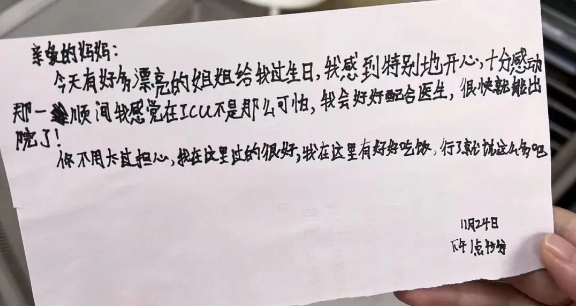 亲爱的妈妈：
今天有好多漂亮的姐姐给我过生日，我感到特别地开心，十分感动
那一顺间我感觉在ICU不是那么可怕，我会好好配合医生，很快就能出
院了！
你不用太过担心，我在这里过的很好，我在这里有好好吃饭，行了就说这么多吧
11月24日
下午1点